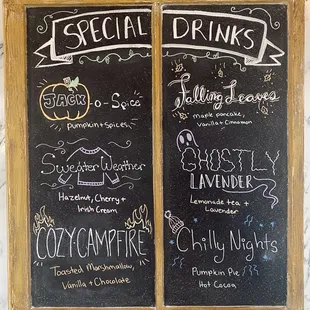 SPECIAL DRINKS
JACK-o-Spice
Pumpkin + Spices
Sweater Weather
Hazelnut, Cherry +
Irish Cream
COZY CAMPFIRE
Toasted Marshmallow,
Vanilla + Chocolate
Falling Leaves
Maple pancake,
Vanilla + Cinnamon
GHOSTLY
LAVENDER
Lemonade tea +
Lavender
Chilly Nights
Pumpkin Pie
Hot Cocoa